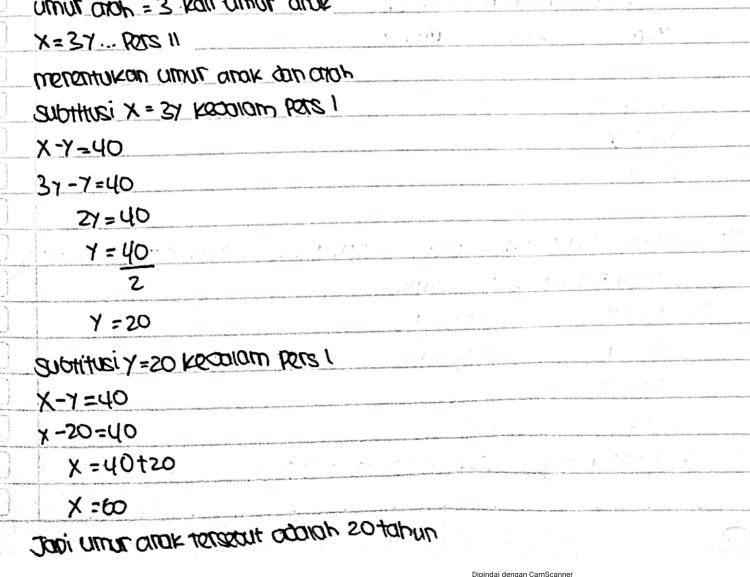 umur ayah = 3 kali umur anak
X = 3Y ... Pers II
menentukan umur anak dan ayah
Subtitusi X = 3Y kedalam Pers I
X - Y = 40
3Y - Y = 40
2Y = 40
Y = 40
2
Y = 20
Subtitusi Y = 20 kedalam Pers I
X - Y = 40
X - 20 = 40
X = 40 + 20
X = 60
Jadi umur anak tersebut adalah 20 tahun
Dipindai dengan CamScanner